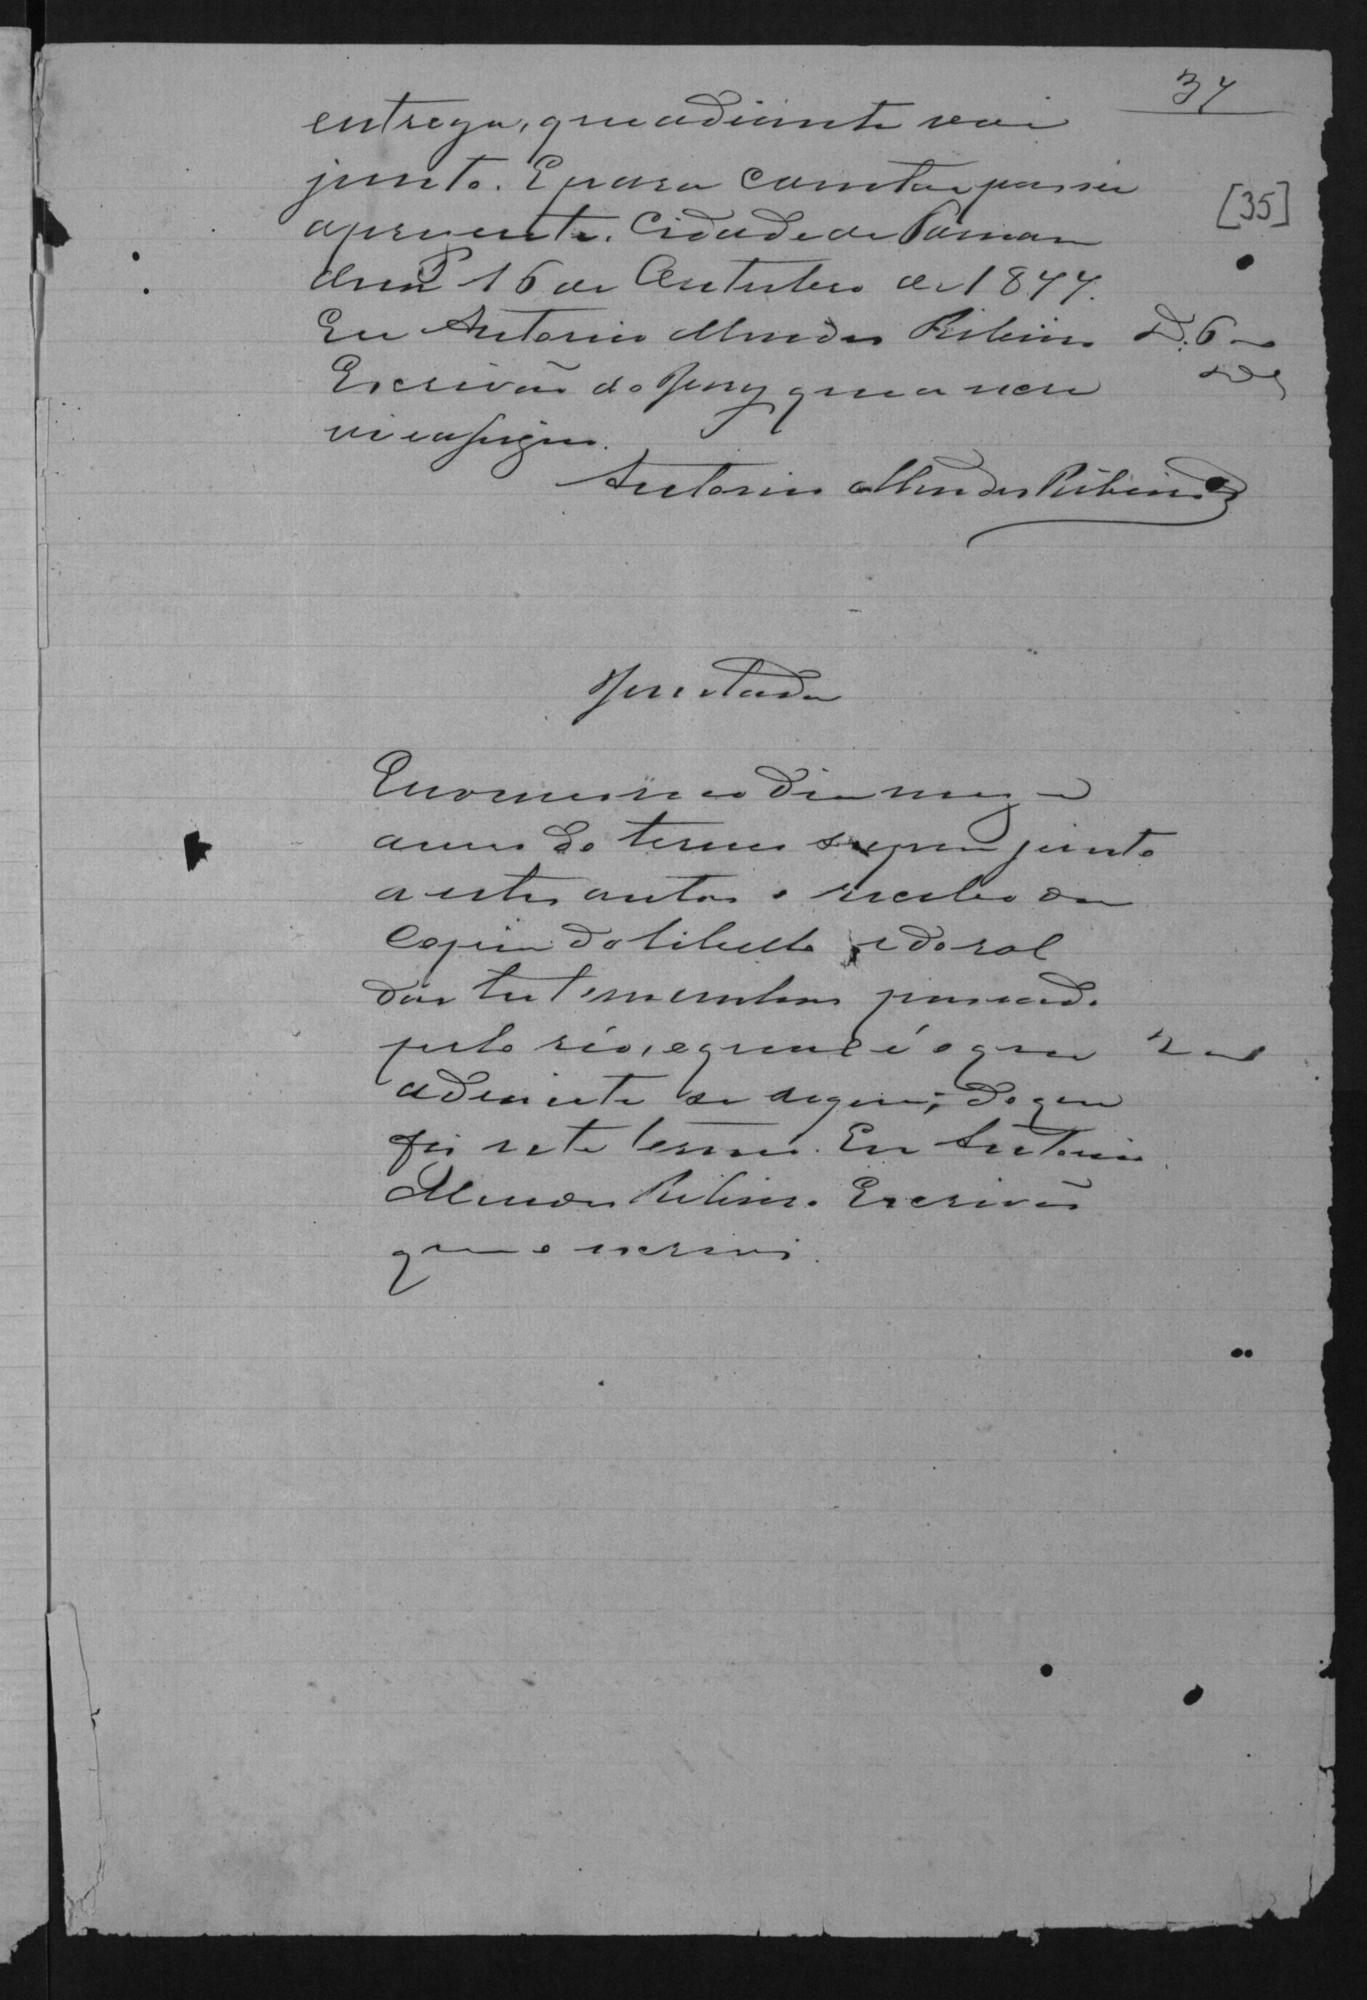 34
entrega, que adiante vai
junto. E para constar passei
[35]
a presente. Cidade de Parnan
16 de Outubro de 1877.
Eu Antonio Mendes Ribeiro D. 6
Escrivão do Jury que a escre
vi e assigno.
Antonio Mendes Ribeiro
Juntada
E no mesmo dia mez e
anno do termo supra junto
a estes autos o recibo da
copia do libello e do rol
das testemunhas passado
pelo réo, e que é o que
adiante se segue; do que
fiz este termo. Eu Antonio
Mendes Ribeiro. Escrivão
que o escrevi.